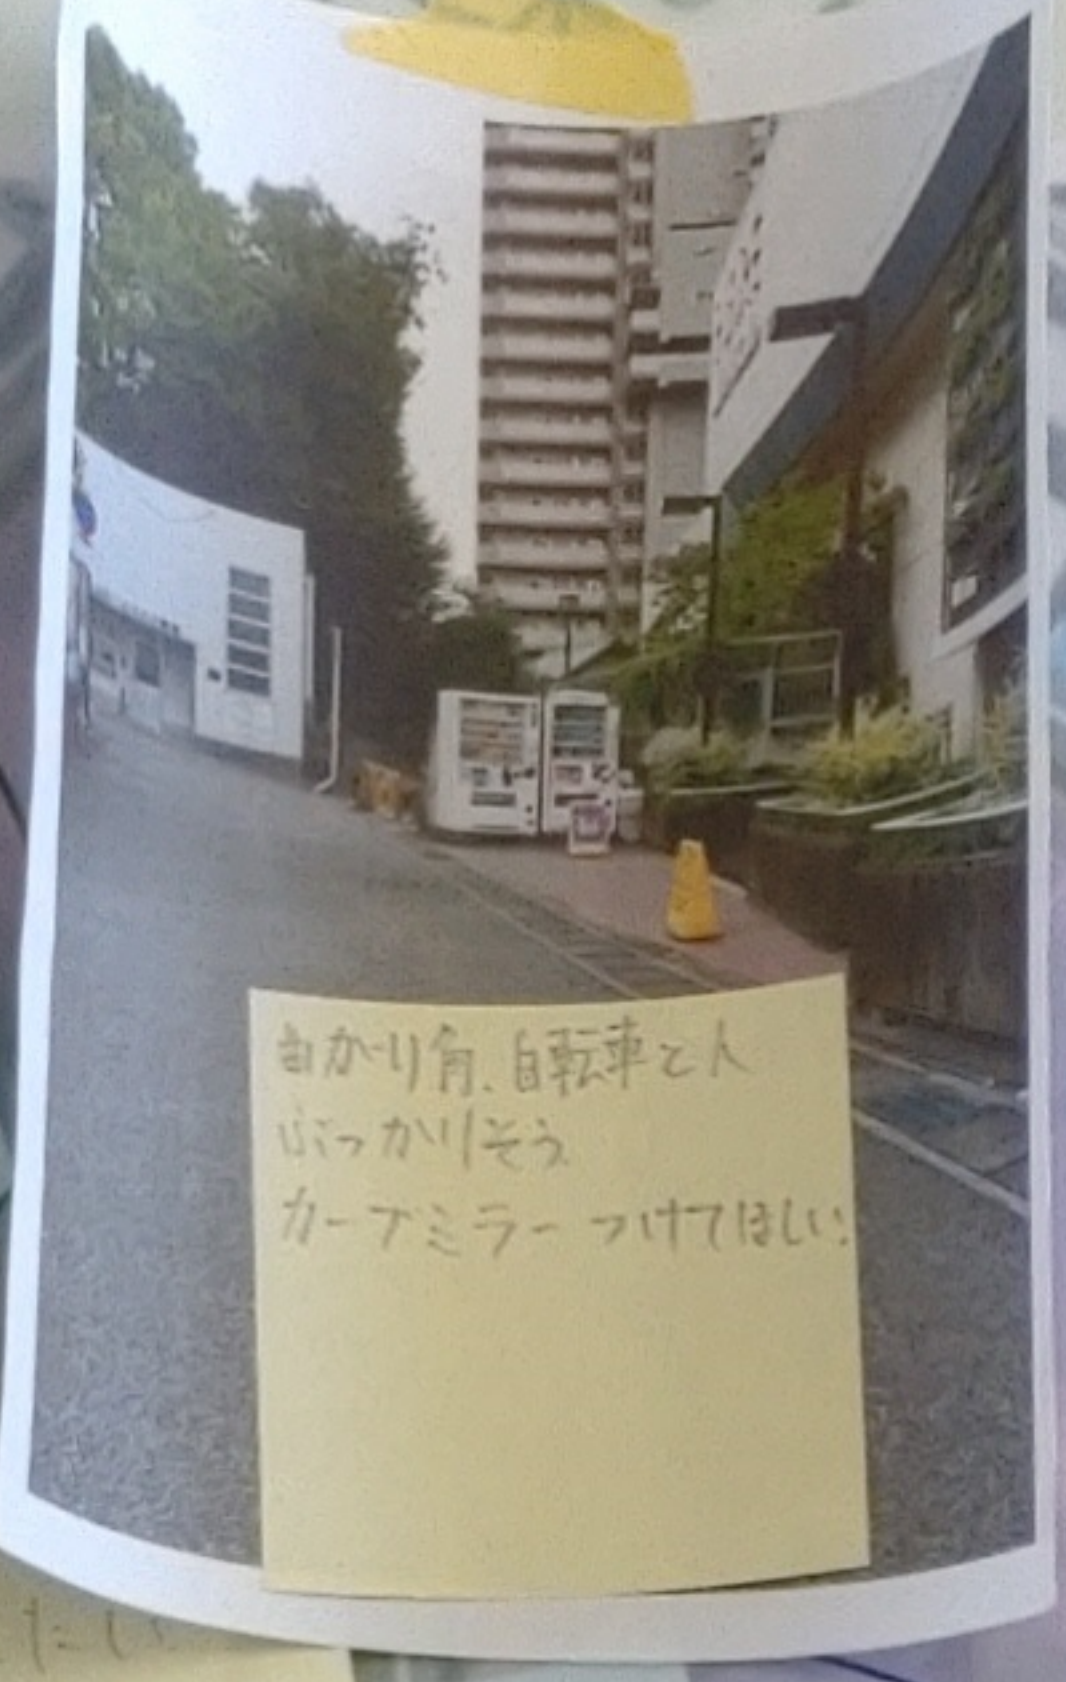 曲がり角、自転車と人
ぶつかりそう。
カーブミラーつけてほしい!
たい